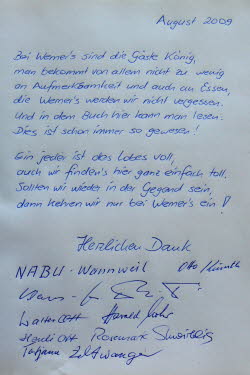 August 2009
Bei Werner's sind die Gäste König,
man bekommt von allem nicht zu wenig
an Aufmerksamkeit und auch an Essen,
die Werner's werden wir nicht vergessen.
Und in dem Buch hier kann man lesen.
Dies ist schon immer so gewesen!
Ein jeder ist des Lobes voll,
auch wir finden's hier ganz einfach toll.
Sollten wir wieder in der Gegend sein,
dann kehren wir nur bei Werner's ein!
Herzlichen Dank
NABU - Wannweil Otto
Walter Ott Harald
Heidi Ott Rosemarie
Tatjana